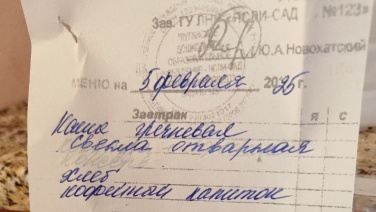 Зав. ГУ ЛНР «ЯСЛИ-САД №123»
Ю.А.Новохатский
МЕНЮ на 5 февраля 2025 г.
Завтрак Я С
Каша гречневая
свекла отварная
хлеб
кофейный напиток